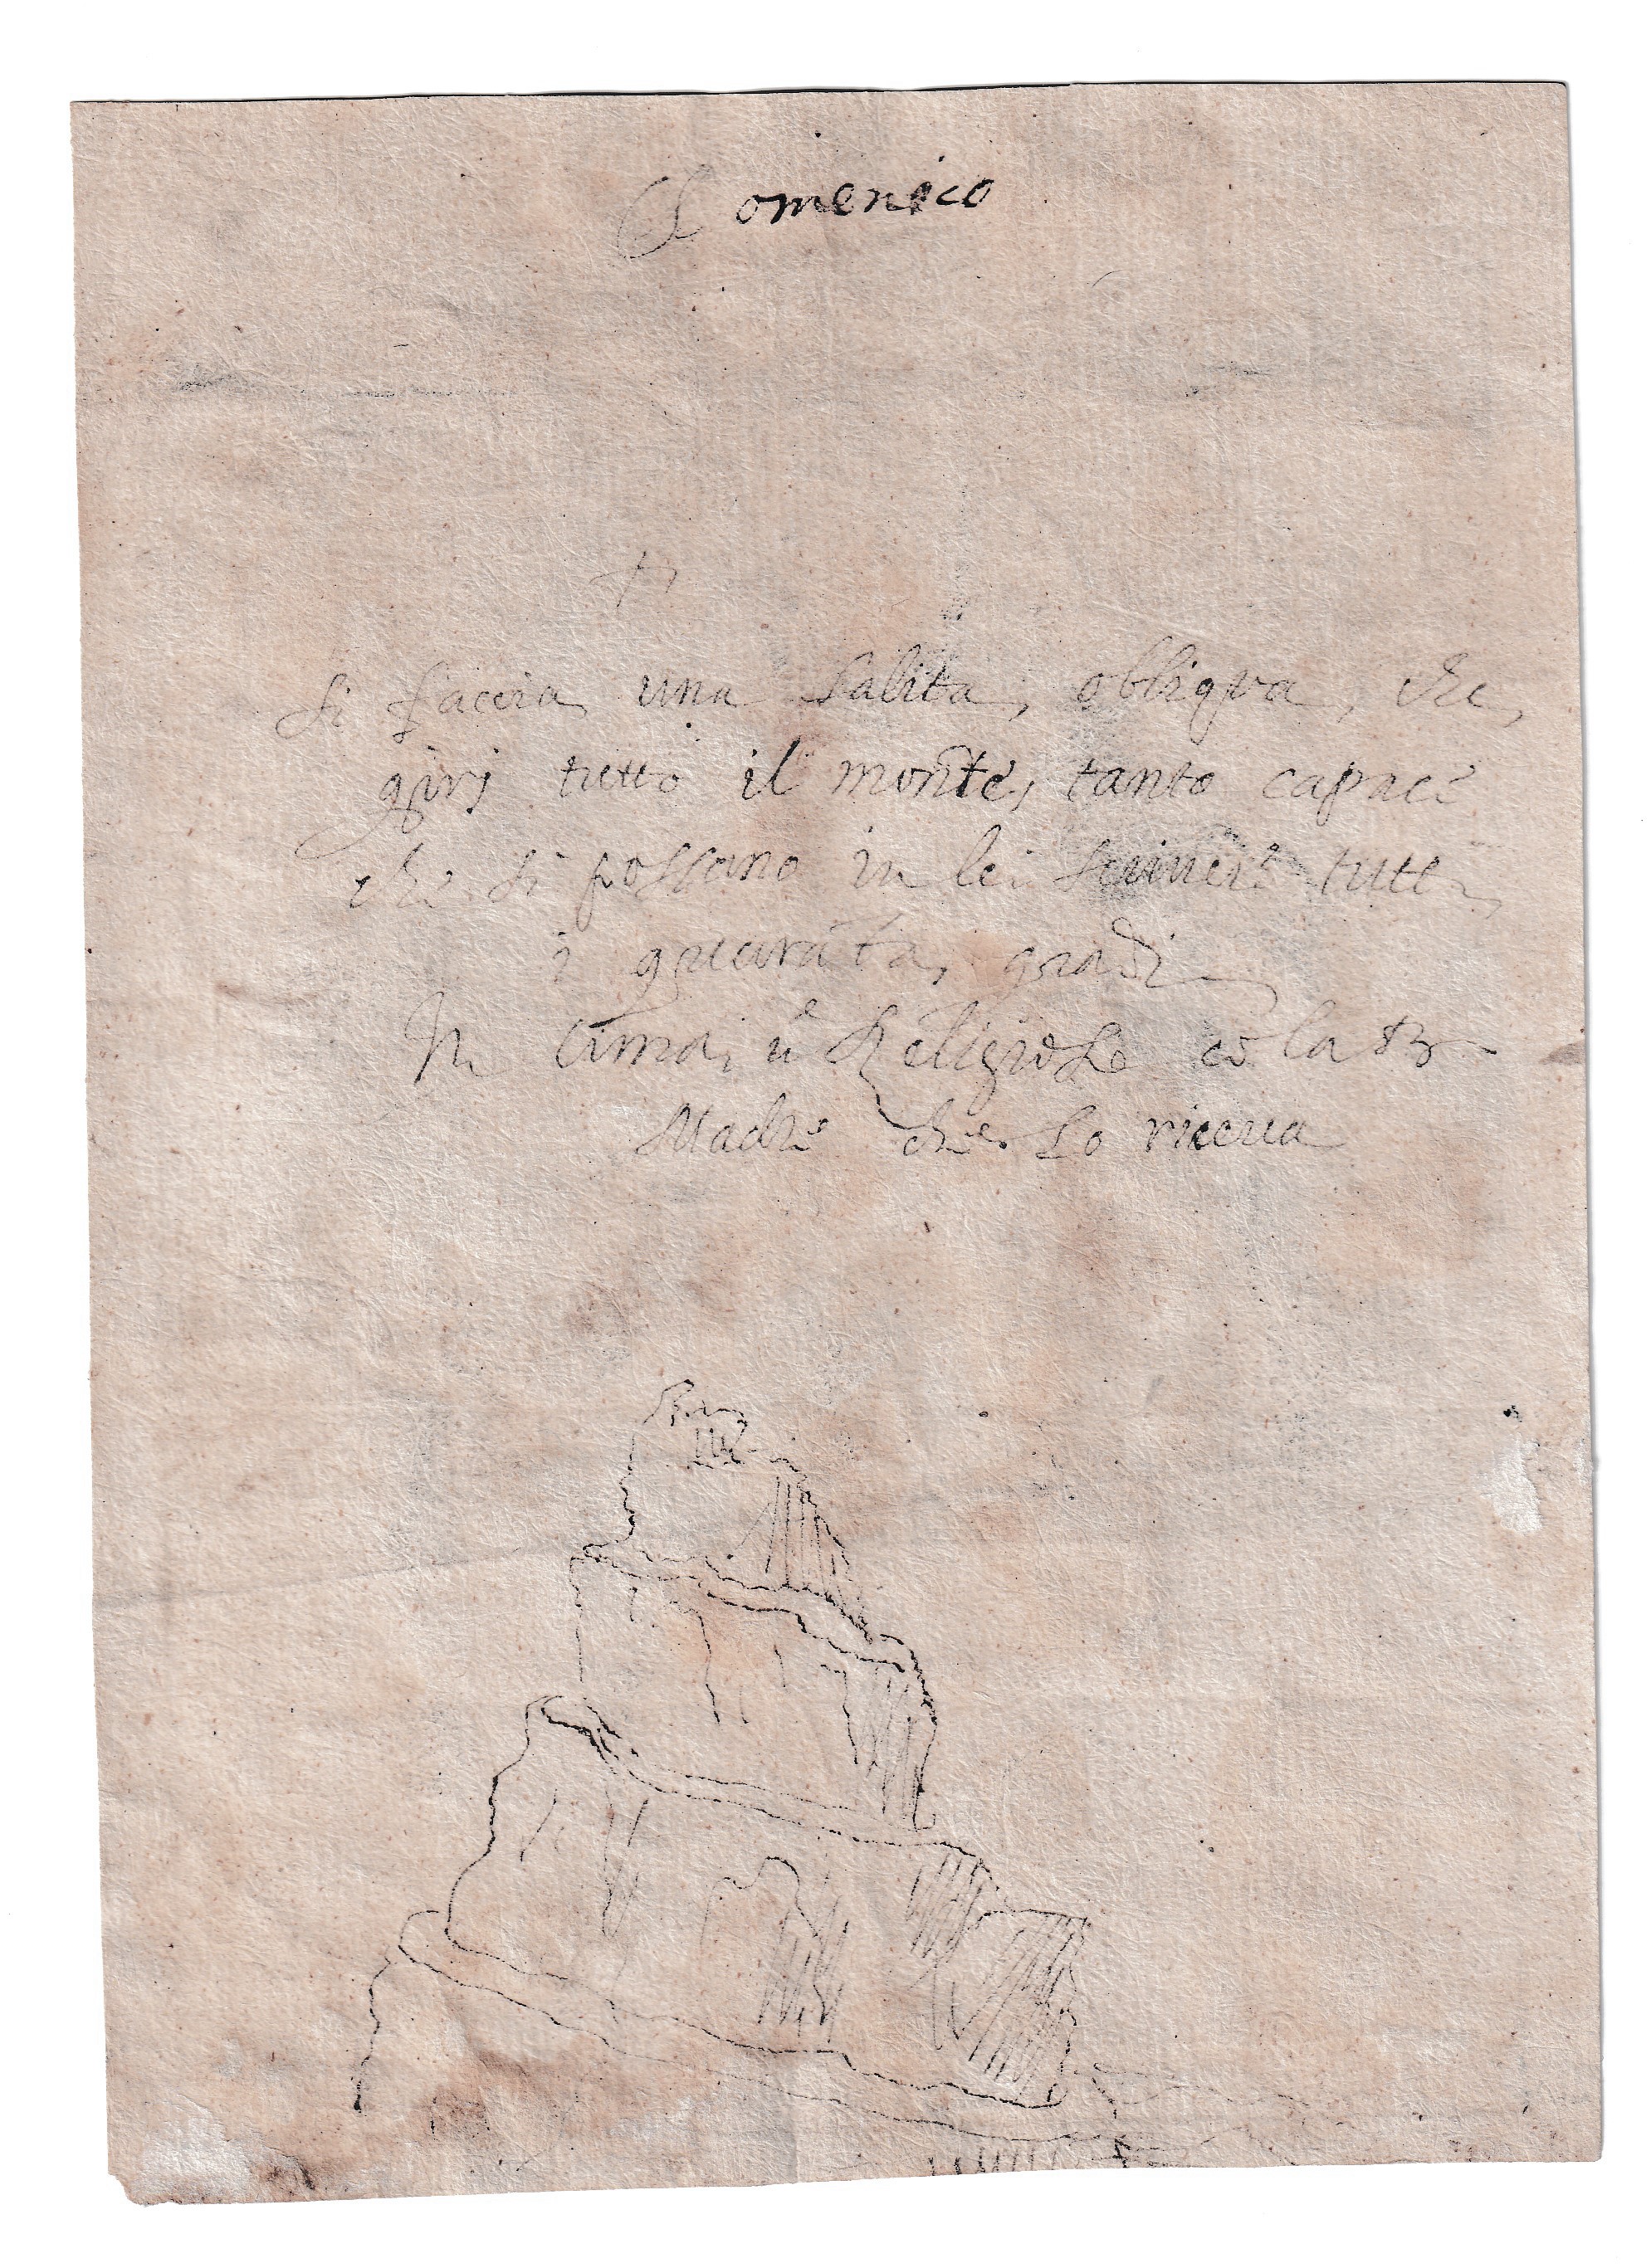 Domenico
si faccia una salita, obliqua, che,
giri tutto il monte, tanto capace
che si possano in lei scriuere tutti
i quaranta, gradi
In cima, ū Religioso cō la B
Madre che lo riceua